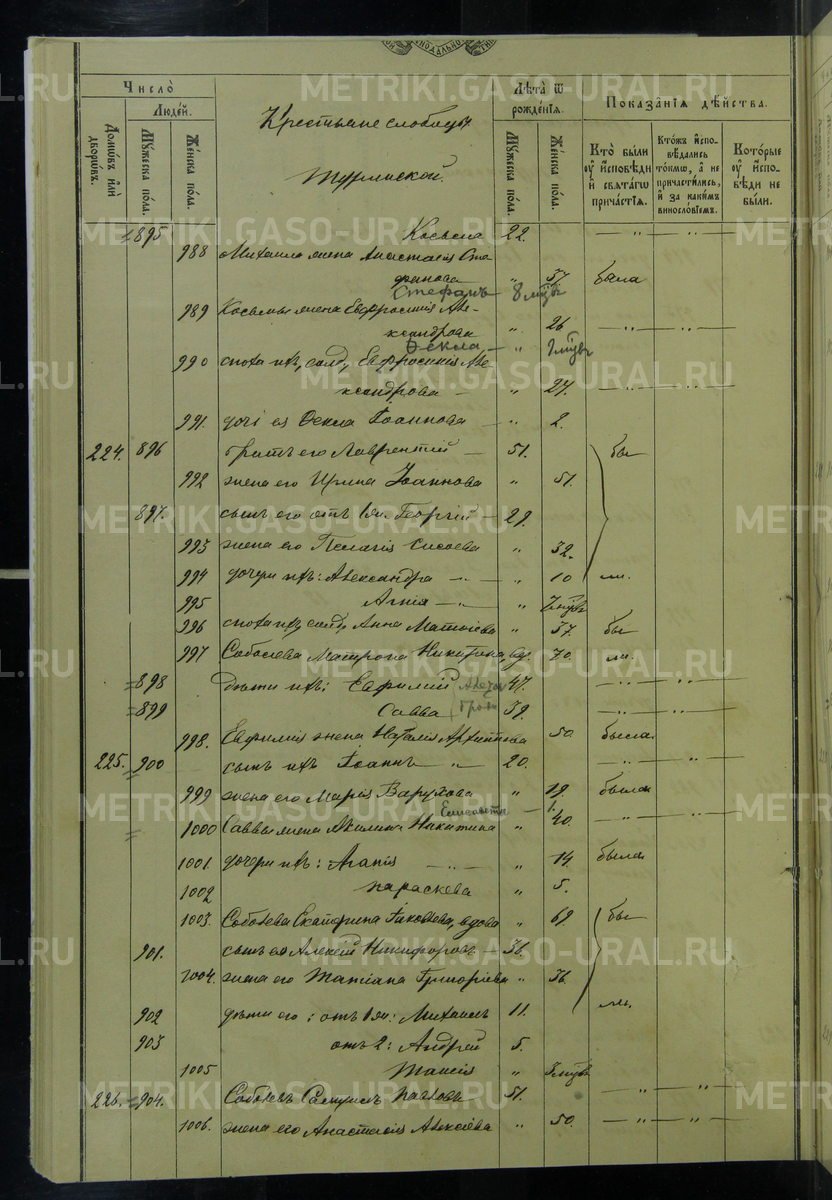 Число
Людей.
Домовъ или дворовъ.
Мужеска пола.
Женска пола.
Крестьяне слободы
Туринской.
Лѣта ѿ рожденія.
Мужеска пола.
Женска пола.
Показанія дѣйства.
Кто были у исповѣди и святагѡ причастія.
Ктожъ исповѣдались токмѡ, а не причастились, и за какимъ винословіемъ.
Которые у исповѣди не были.
895 Косьма 22. — „ — „ —
988 Михаила жена Анастасія Сте-
фанова „ 37 была
Стефанъ 8 мцвъ
989 Косьмы жена Евфросинія Але-
ксандрова „ 26 — „ — „ —
Ѳекла — „
990 сноха ихъ, солд. Евфросинія Але-
ксандрова — „ 27. — „ — „ —
991. дочь ея Ѳекла Іоаннова — „ 2.
224. 896 братъ его Лаврентій — 51. бы
992 жена его Ирина Іоаннова „ 51.
897. сынъ его отъ 1 ж. Георгій — 29.
993 жена его Пелагія Сисоева „ 32.
994 дочери ихъ: Александра — „ — „ 10 ли.
995 Агнія — „ — „
996 сноха ихъ солд. Анна Матѳіева „ 37. бы
997 Соболева Матрона Никитина, вд. 70. ли.
898 дѣти ихъ: Евфимій 47. — „ — „ —
899 Савва 39. — „ — „ —
998. Евфимія жена Наталія Архиппова 50 была.
225. 900 сынъ ихъ Іоаннъ — „ — 20. — „ — „ —
999 жена его Марія Варухова „ 19. была
Елисавета — 1.
1000 Саввы жена Акилина Никитина „ 40. — „ — „ —
1001 дочери ихъ: Агапія — „ — „ 14. была
1002 Параскева „ 5.
1003. Соболева Екатерина Іаковлева, вдова „ 69. бы
901. сынъ ея Алексій Никифоровъ — 36.
1004. жена его Татіана Григоріева „ 36.
902 дѣти его: отъ 1 ж: Михаилъ 11. ли.
903 отъ 2: Андрей 5.
1005 Таисія „
226. 904. Соболевъ Самуилъ Павловъ 51. — „ — „ —
1006. жена его Анастасія Алексіева „ 50. — „ — „ —
METRIKI.GASO-URAL.RU